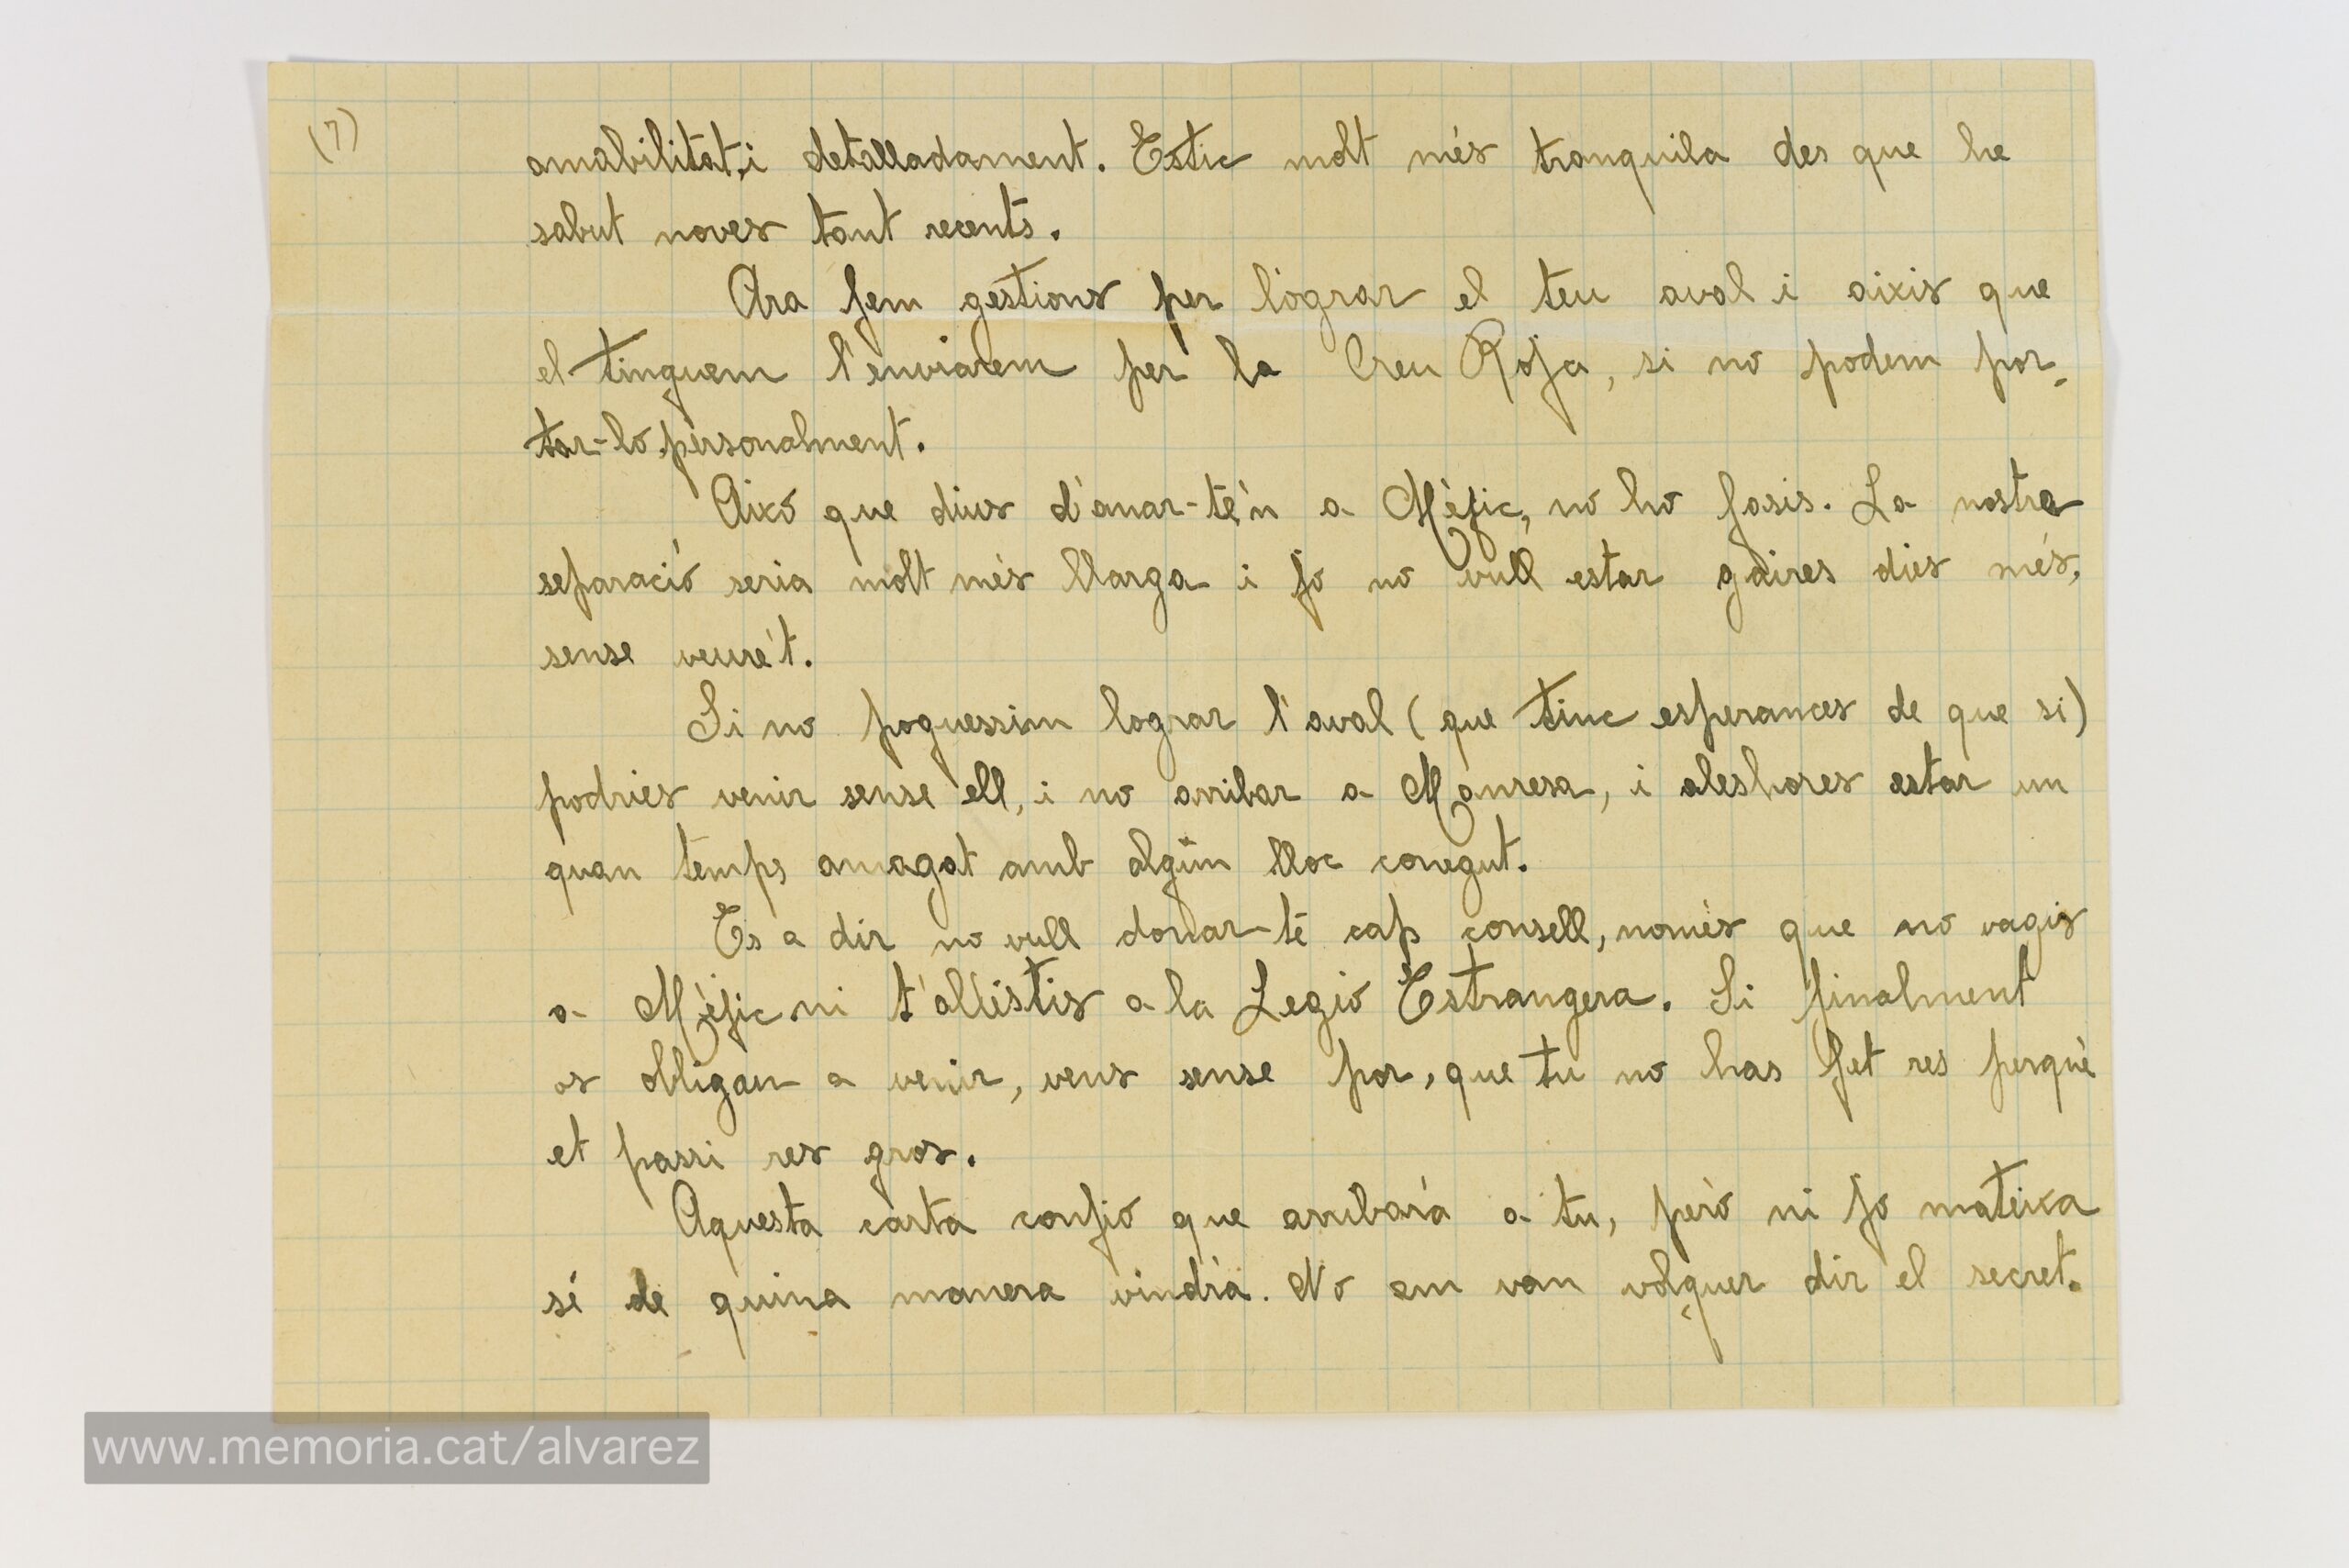 (7)
amabilitat, i detalladament. Estic molt més tranquila des que he
sabut noves tant recents.
Ara fem gestions per lograr el teu aval i aixis que
el tinguem l'enviarem per la Creu Roja, si no podem por-
tar-lo personalment.
Aixó que dius d'anar-te'n a Mèjic, no ho fasis. La nostra
separació seria molt més llarga i jo no vull estar gaires dies més,
sense veure't.
Si no poguessim lograr l'aval (que tinc esperances de que si)
podries venir sense ell, i no arribar a Manresa, i aleshores estar un
quan temps amagat amb algún lloc conegut.
Es a dir no vull donar-te cap consell, només que no vagis
a Mèjic ni t'allistis a la Legió Estrangera. Si finalment
os obligan a venir, vens sense por, que tu no has fet res perquè
et passi res gros.
Aquesta carta confio que arribarà a tu, però ni jo mateixa
sé de quina manera vindrà. No em van volguer dir el secret.
www.memoria.cat/alvarez